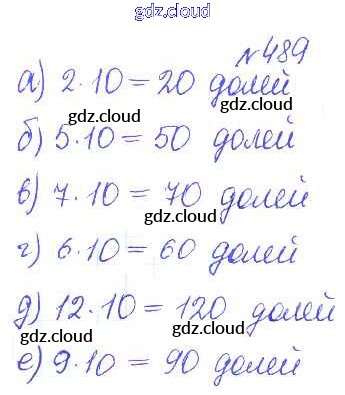 gdz.cloud
№489
а) 2·10=20 долей
gdz.cloud
б) 5·10=50 долей
gdz.cloud
в) 7·10=70 долей
gdz.cloud
г) 6·10=60 долей
gdz.cloud
д) 12·10=120 долей
gdz.cloud
е) 9·10=90 долей